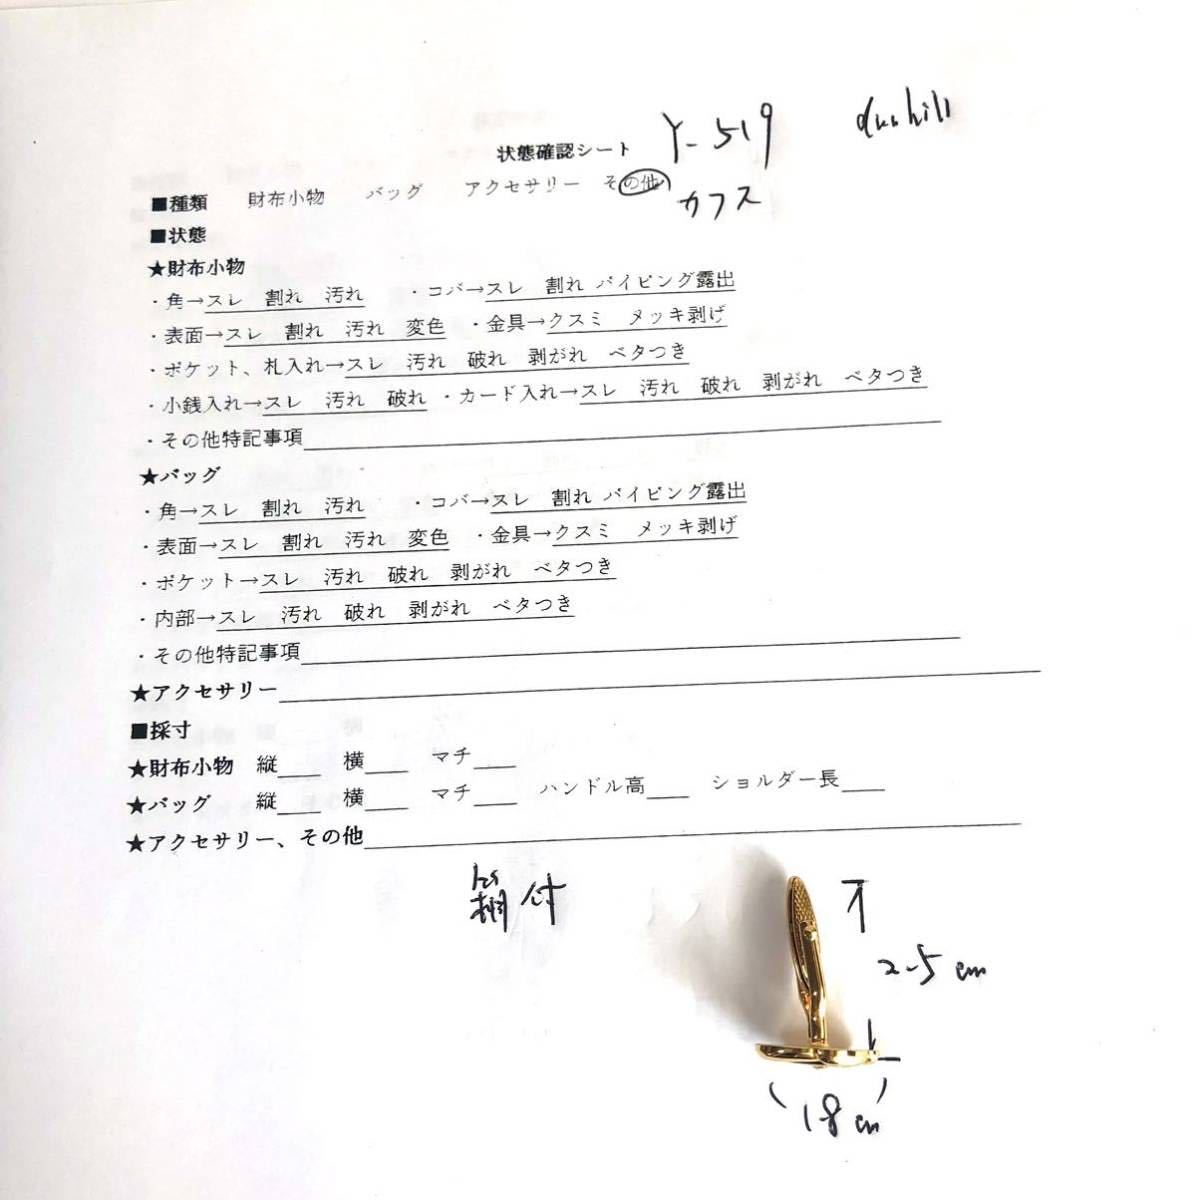 Y-519 dunhill
状態確認シート
■種類 財布小物 バッグ アクセサリー その他
カフス
■状態
★財布小物
・角→スレ 割れ 汚れ ・コバ→スレ 割れ パイピング露出
・表面→スレ 割れ 汚れ 変色 ・金具→クスミ メッキ剥げ
・ポケット、札入れ→スレ 汚れ 破れ 剥がれ ベタつき
・小銭入れ→スレ 汚れ 破れ ・カード入れ→スレ 汚れ 破れ 剥がれ ベタつき
・その他特記事項
★バッグ
・角→スレ 割れ 汚れ ・コバ→スレ 割れ パイピング露出
・表面→スレ 割れ 汚れ 変色 ・金具→クスミ メッキ剥げ
・ポケット→スレ 汚れ 破れ 剥がれ ベタつき
・内部→スレ 汚れ 破れ 剥がれ ベタつき
・その他特記事項
★アクセサリー
■採寸
★財布小物 縦 横 マチ
★バッグ 縦 横 マチ ハンドル高 ショルダー長
★アクセサリー、その他
箱付
2.5cm
1.8cm